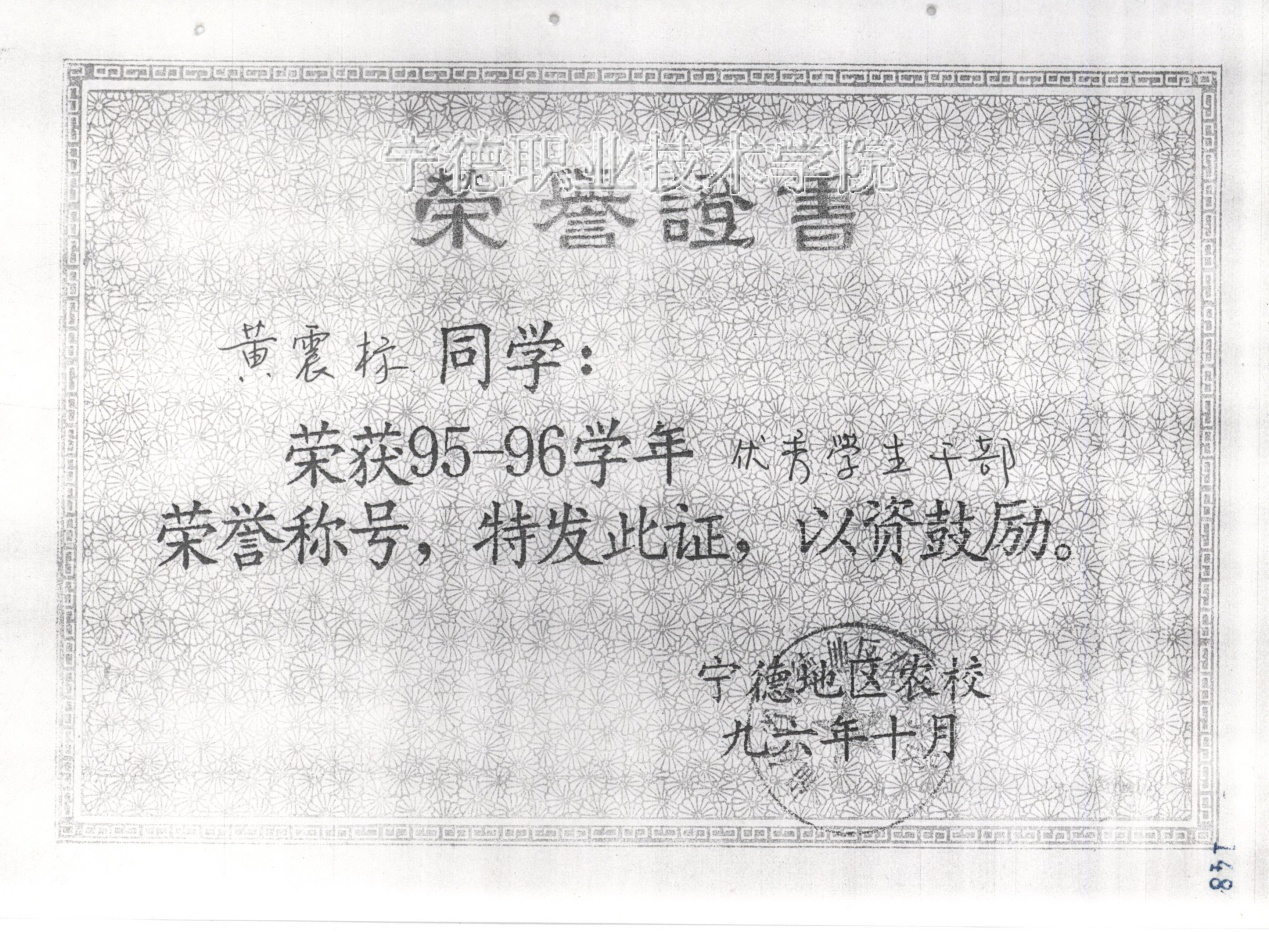 宁德职业技术学院
荣誉證書
黄震标 同学：
荣获95-96学年 优秀学生干部
荣誉称号，特发此证，以资鼓励。
宁德地区农校
九六年十月
148